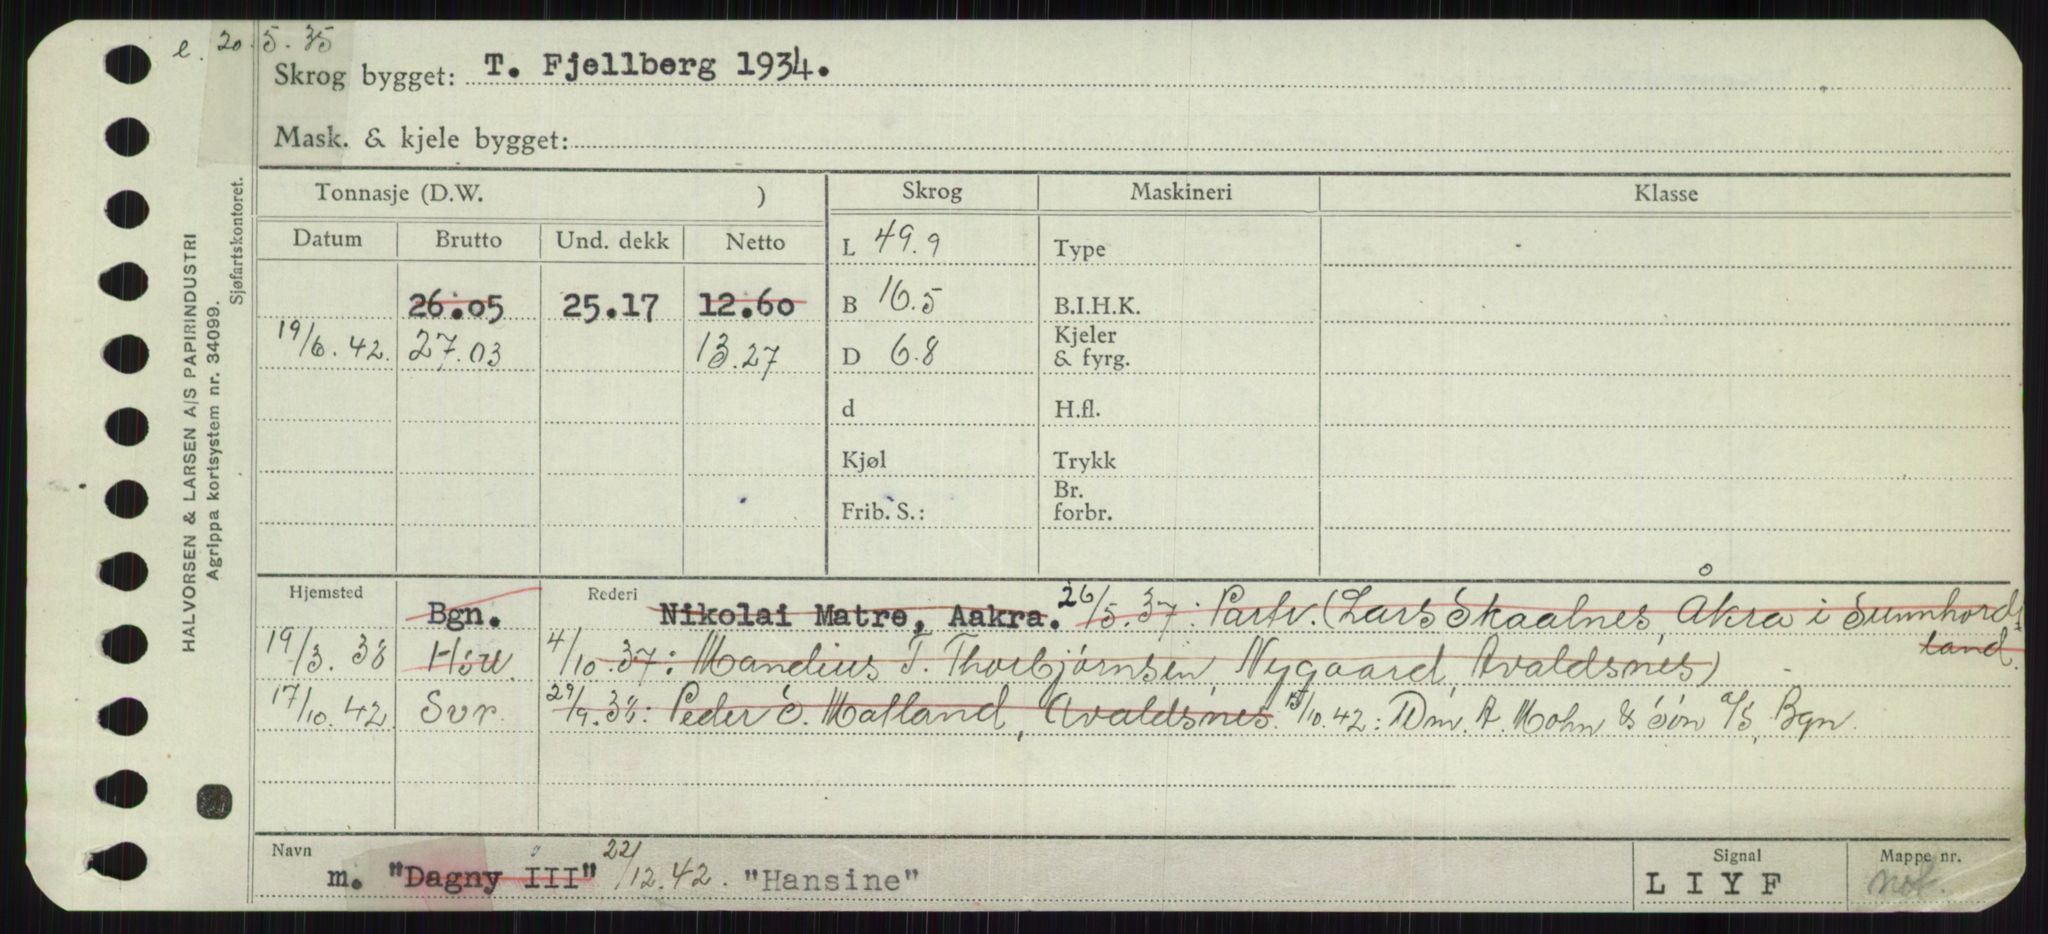 e. 20.5.35
Skrog bygget: T. Fjellberg 1934.
Mask. & kjele bygget:
HALVORSEN & LARSEN A/S PAPIRINDUSTRI
Agrippa kortsystem nr. 34099.
Sjøfartskontoret.
Tonnasje (D.W. ) Skrog Maskineri Klasse
Datum Brutto Und. dekk Netto L 49.9 Type
26.05 25.17 12.60 B 16.5 B.I.H.K.
19/6.42. 27.03 13.27 D 6.8 Kjeler & fyrg.
d H.fl.
Kjøl Trykk
Frib. S.: Br. forbr.
Hjemsted Bgn. Rederi Nikolai Matre, Aakra. 26/5.37: Partr. (Lars Skaalnes, Åkra i Sunnhord-
land.
19/3.38 4/10.37: Mandius T. Thorbjørnsen, Nygaard, Avaldsnes)
17/10.42 Svr. 29/9.38: Peder C. Matland, Avaldsnes. 15/10.42: Dm. A. Mohn & Søn a/s, Bgn.
Navn Signal Mappe nr.
m. "Dagny III" 22/12.42. "Hansine" LIYF not.